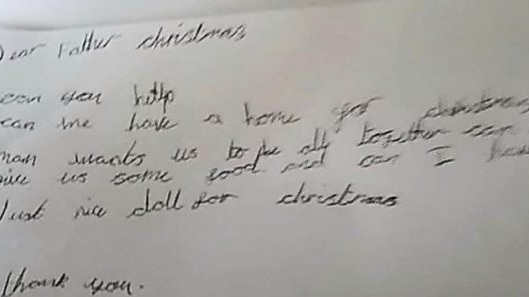 Dear Father christmas
can you help
can we have a home for christmas
mam wants us to be all together can
give us some food and can I have
Just nice doll for christmas
thank you.